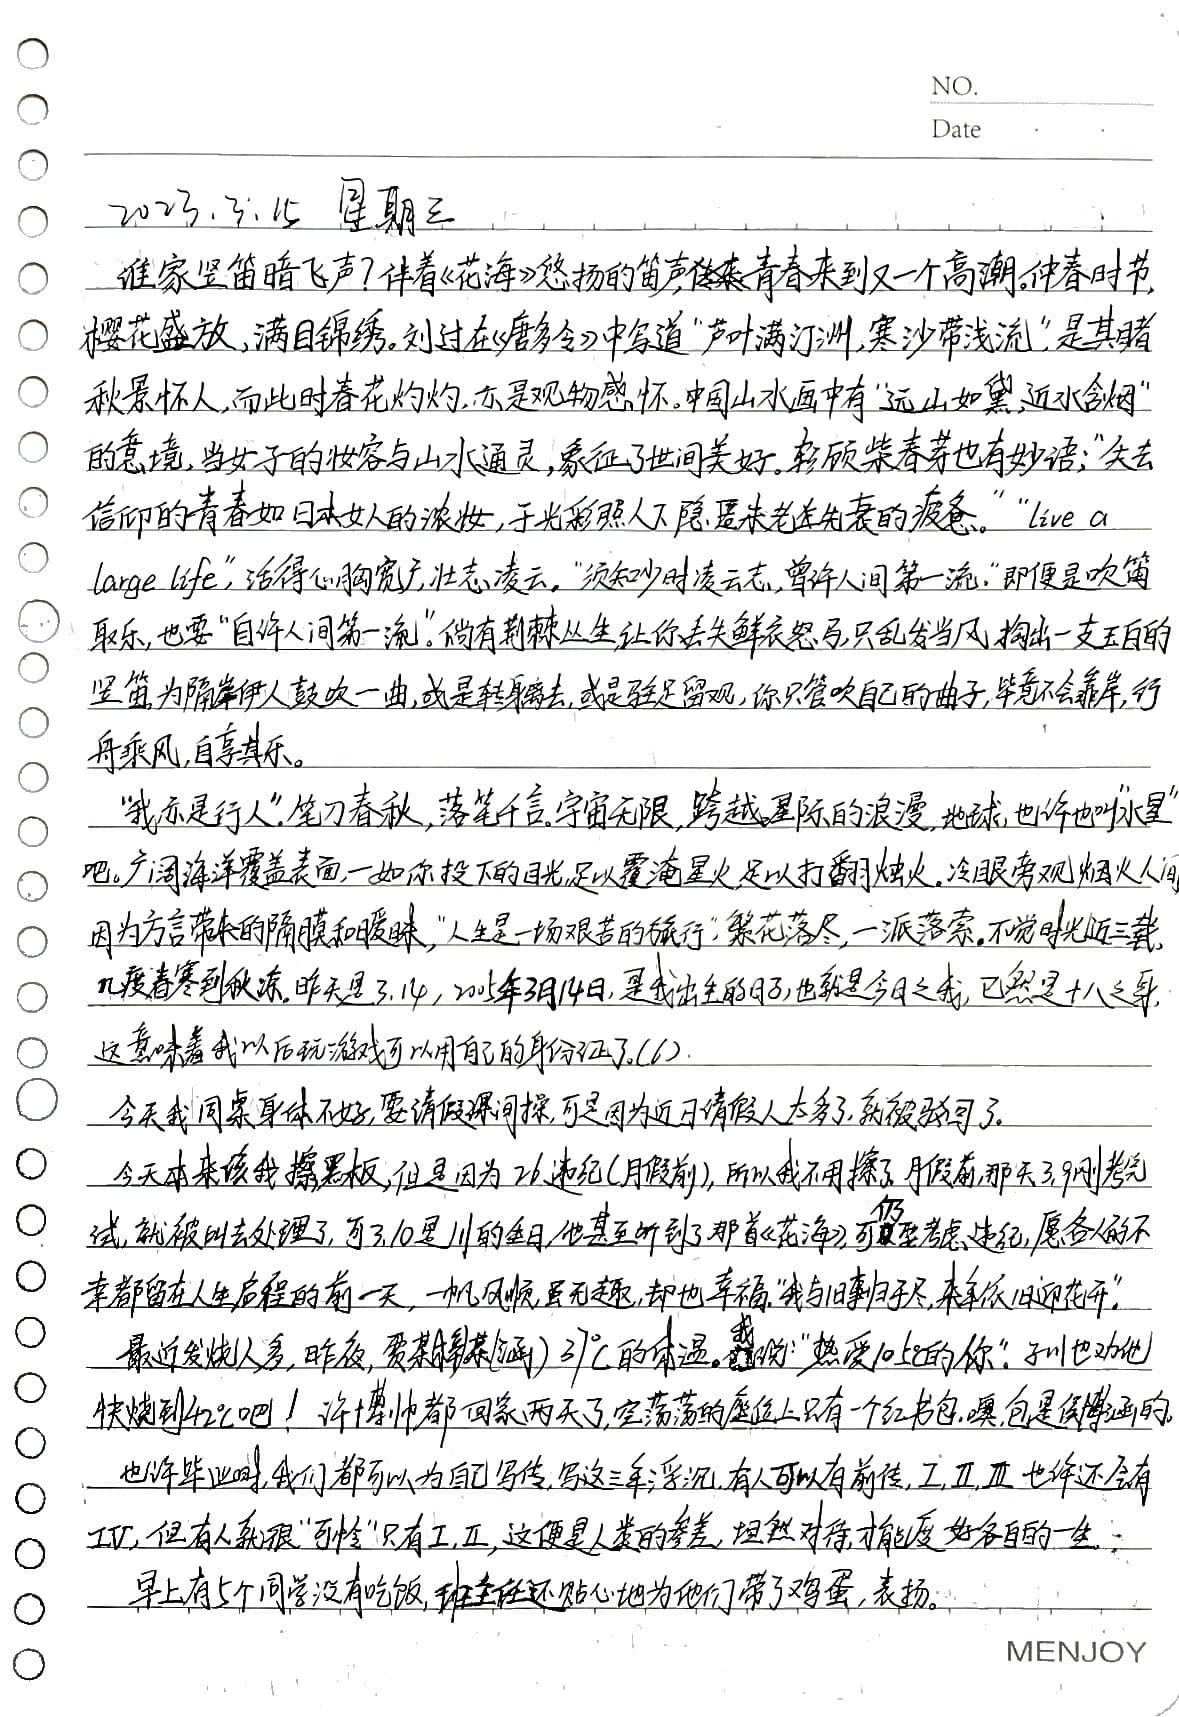 NO.
Date
2023.3.15 星期三
谁家竖笛暗飞声?伴着《花海》悠扬的笛声,青春来到又一个高潮。仲春时节,
樱花盛放,满目锦绣。刘过在《唐多令》中写道“芦叶满汀洲,寒沙带浅流”,是其睹
秋景怀人,而此时春花灼灼,亦是观物感怀。中国山水画中有“远山如黛,近水含烟”
的意境,当女子的妆容与山水通灵,象征了世间美好。转顾柴春芽也有妙语:“失去
信仰的青春如日本女人的浓妆,于光彩照人下隐匿未老先衰的疲惫。”“live a
large life”,活得心胸宽广,壮志凌云。“须知少时凌云志,曾许人间第一流。”即便是吹笛
取乐,也要“自许人间第一流”。倘有荆棘丛生,让你丢失鲜衣怒马,只乱发当风,掏出一支五百的
竖笛,为隔岸伊人鼓吹一曲,或是转身离去,或是驻足留观,你只管吹自己的曲子,毕竟不会靠岸,行
舟乘风,自享其乐。
“我亦是行人”。笔刀春秋,落笔千言。宇宙无限,跨越星际的浪漫,地球,也许也叫“水星”
吧。广阔海洋覆盖表面,一如你投下的目光,足以覆淹星火,足以打翻烛火。冷眼旁观烟火人间
因为方言带来的隔膜和暧昧,“人生是一场艰苦的旅行”,繁花落尽,一派落索。不觉时光近三载,
几度春寒到秋凉。昨天是3.14,2005年3月14日,是我出生的日子,也就是今日之我,已然是十八之身,
这意味着我以后玩游戏可以用自己的身份证了。(6).
今天我同桌身体不好,要请假课间操,可是因为近日请假人太多了,就被驳回了。
今天本来该我擦黑板,但是因为26违纪(月假前),所以我不用擦了。月假前,那天3.9刚考完
试,就被叫去处理了,可3.10是川的生日,他甚至听到了那首《花海》,可仍要考虑违纪,愿各人的不
幸都留在人生启程的前一天,一帆风顺,虽无趣,却也幸福。“我与旧事归于尽,来年依旧迎花开”。
最近发烧人多,昨夜,(涵)37℃的体温。我说:“热爱105℃的你”。子川也劝他
快烧到42℃吧!许博帅都回家两天了,空荡荡的座位上只有一个红书包,噢,包是侯博涵的。
也许毕业时,我们都可以为自己写传,写这三年浮沉,有人可以有前传,I,II,III也许还会有
IV,但有人就很“可怜”只有I,II,这便是人类的参差,坦然对待,才能度好各自的一生。
早上有5个同学没有吃饭,班主任还贴心地为他们带了鸡蛋,表扬。
MENJOY